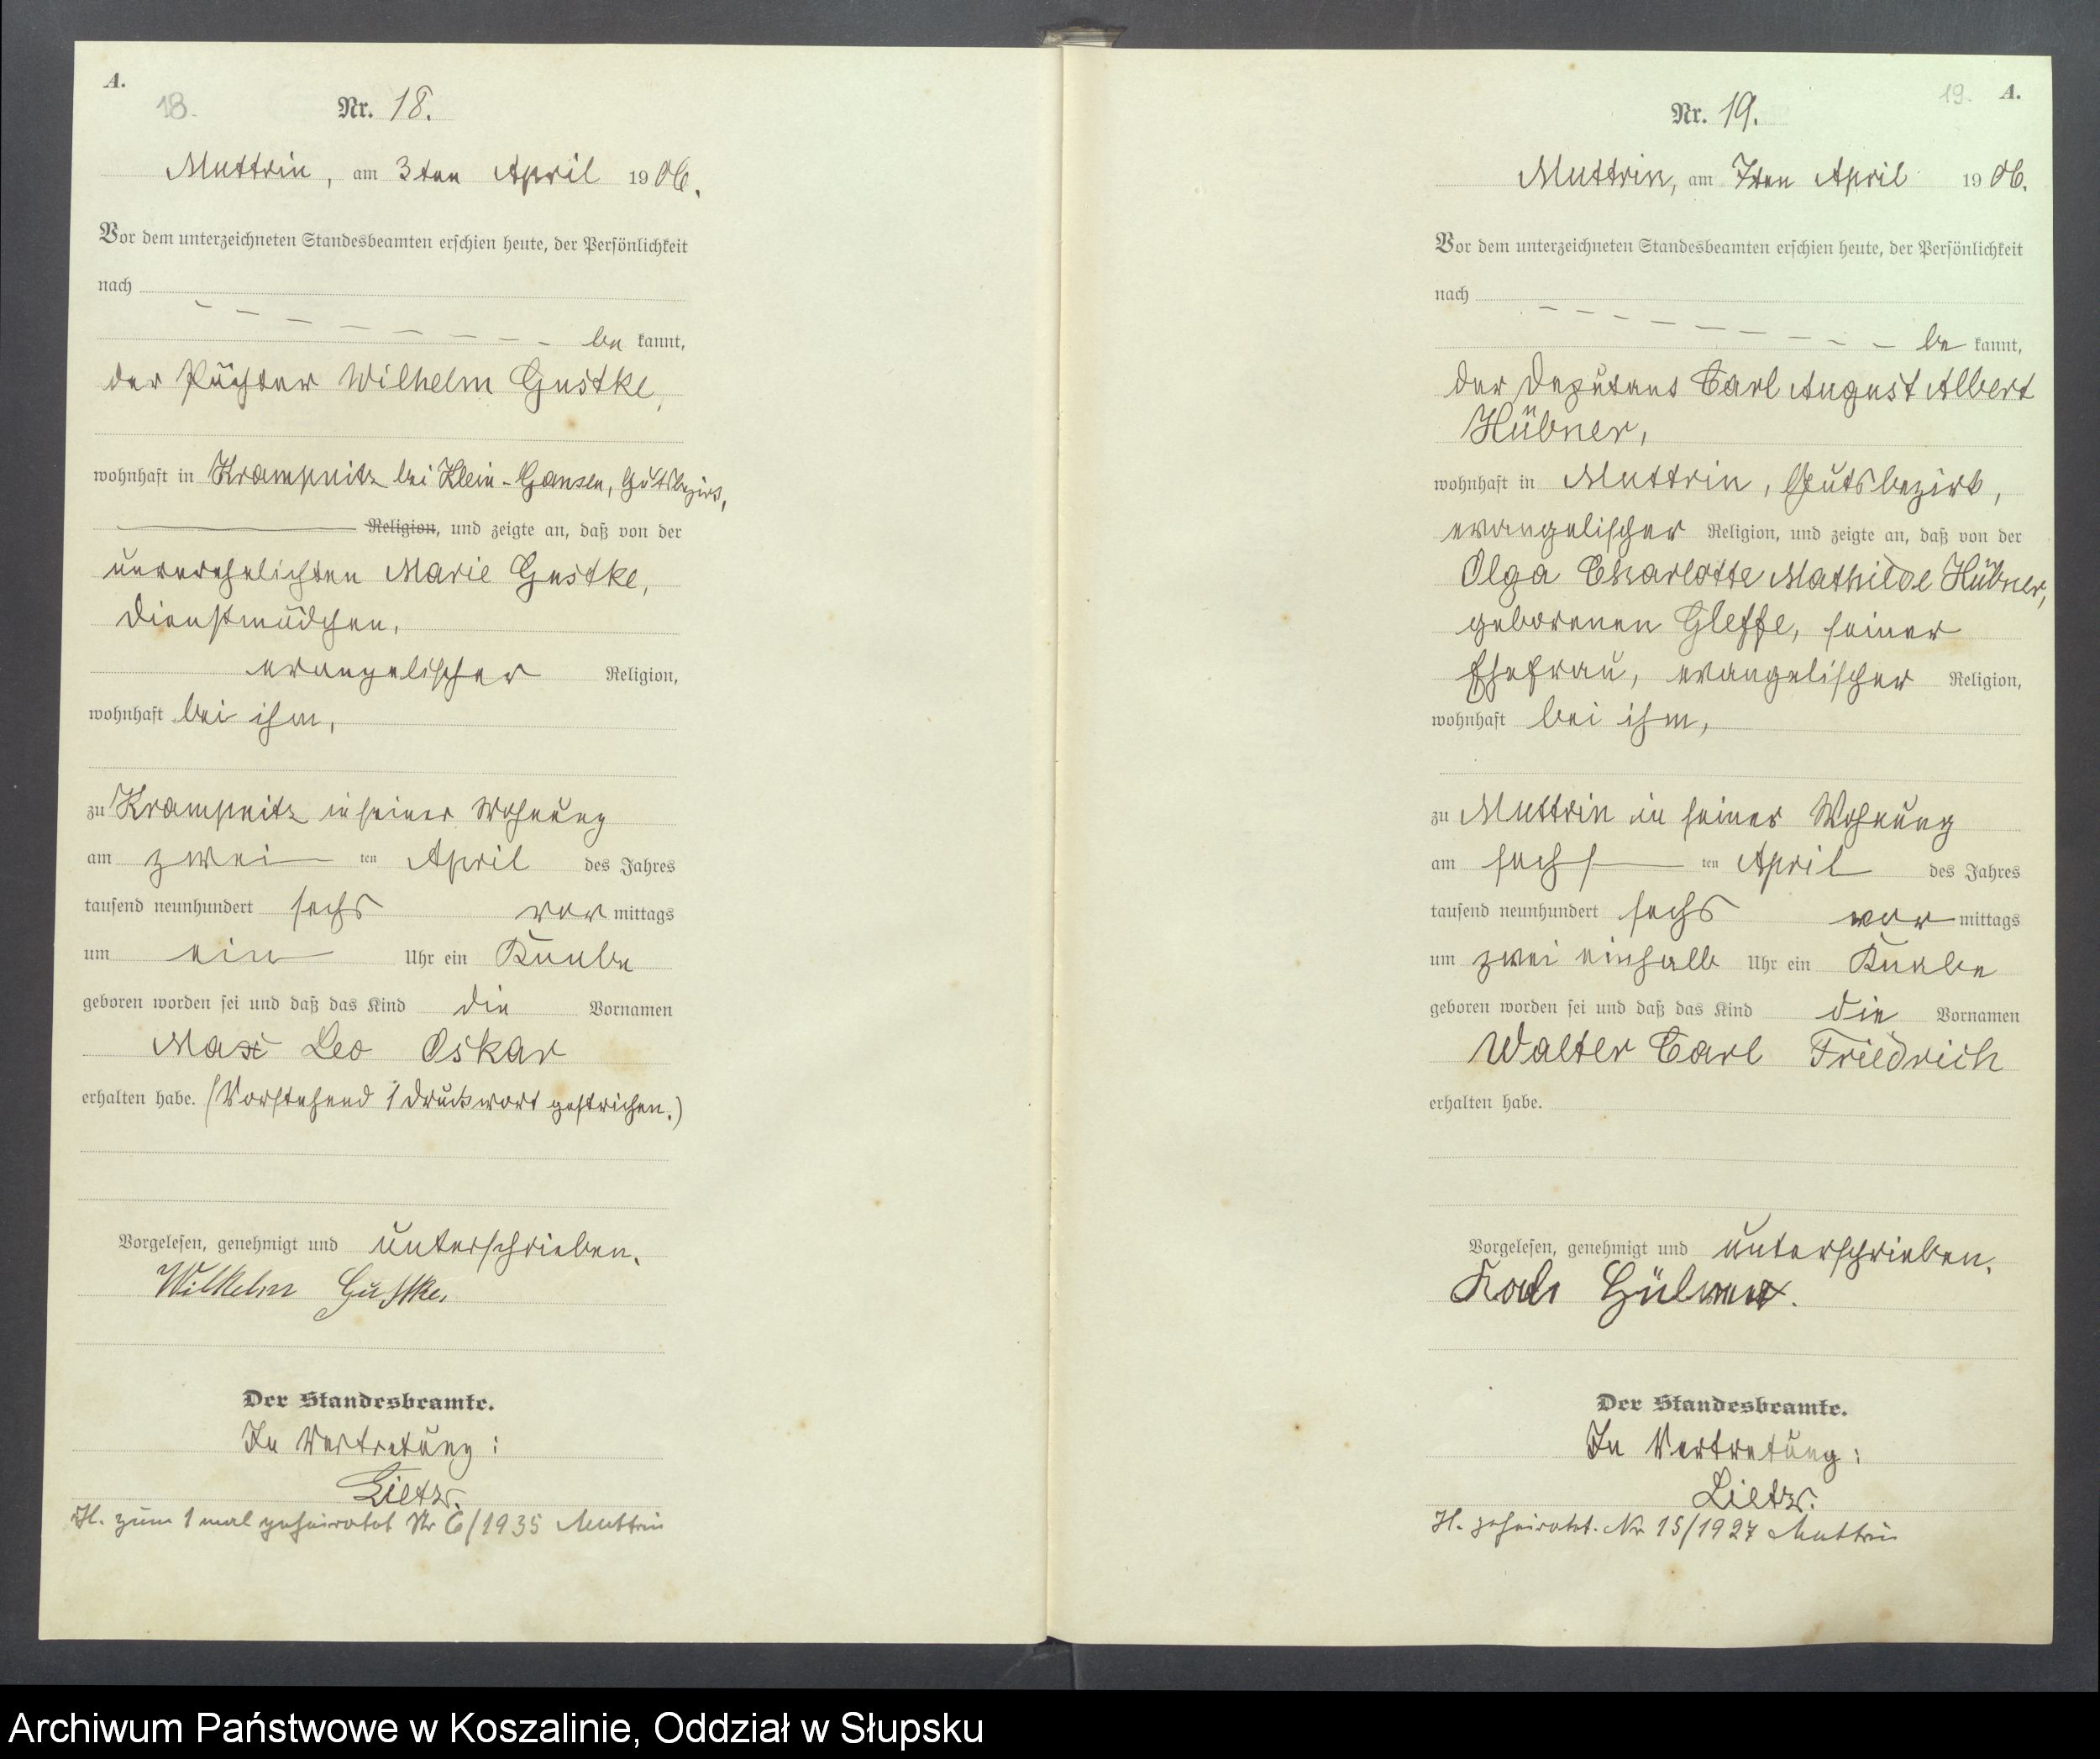 A.
18.
Nr. 18.
Muttrin, am 3ten April 1906.
Vor dem unterzeichneten Standesbeamten erschien heute, der Persönlichkeit
nach
be kannt,
der Pächter Wilhelm Gustke,
wohnhaft in Krampnitz bei Klein-Gansen, Gutsbezirk,
Religion, und zeigte an, daß von der
unverehelichten Marie Gustke,
Dienstmädchen,
evangelischer Religion,
wohnhaft bei ihm,
zu Krampnitz in seiner Wohnung
am zwei ten April des Jahres
tausend neunhundert sechs vor mittags
um ein Uhr ein Knabe
geboren worden sei und daß das Kind die Vornamen
Max Leo Oskar
erhalten habe. (Vorstehend 1 Druckwort gestrichen.)
Vorgelesen, genehmigt und unterschrieben.
Wilhelm Gustke.
Der Standesbeamte.
In Vertretung:
Lietz.
H. zum 1 mal geheiratet Nr 6/1935 Muttrin
19. A.
Nr. 19.
Muttrin, am 7ten April 1906.
Vor dem unterzeichneten Standesbeamten erschien heute, der Persönlichkeit
nach
be kannt,
der Deputant Carl August Albert
Hübner,
wohnhaft in Muttrin, Gutsbezirk,
evangelischer Religion, und zeigte an, daß von der
Olga Charlotte Mathilde Hübner,
geborenen Gleffe, seiner
Ehefrau, evangelischer Religion,
wohnhaft bei ihm,
zu Muttrin in seiner Wohnung
am sechs ten April des Jahres
tausend neunhundert sechs vor mittags
um zwei einhalb Uhr ein Knabe
geboren worden sei und daß das Kind die Vornamen
Walter Carl Friedrich
erhalten habe.
Vorgelesen, genehmigt und unterschrieben.
Der Standesbeamte.
In Vertretung:
Lietz.
H. geheiratet. Nr 15/1927 Muttrin
Archiwum Państwowe w Koszalinie, Oddział w Słupsku